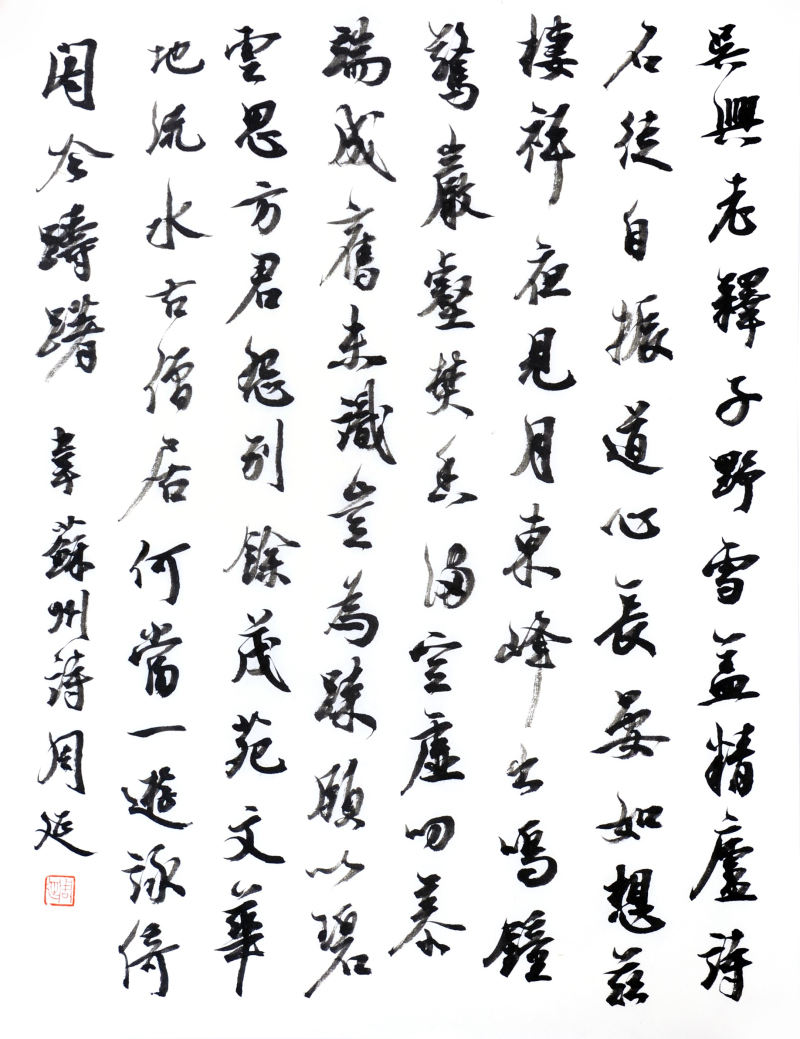 吳興老釋子野雪蓋精廬詩
名徒自振道心長晏如想茲
棲祥夜見月東峰出鳴鐘
驚巖壑焚香滿空虛叨慕
端成舊未識豈為疎願以碧
雲思方君怨別餘茂苑文華
地流水古僧居何當一遊詠倚
閣吟躊躇 韋蘇州詩周延